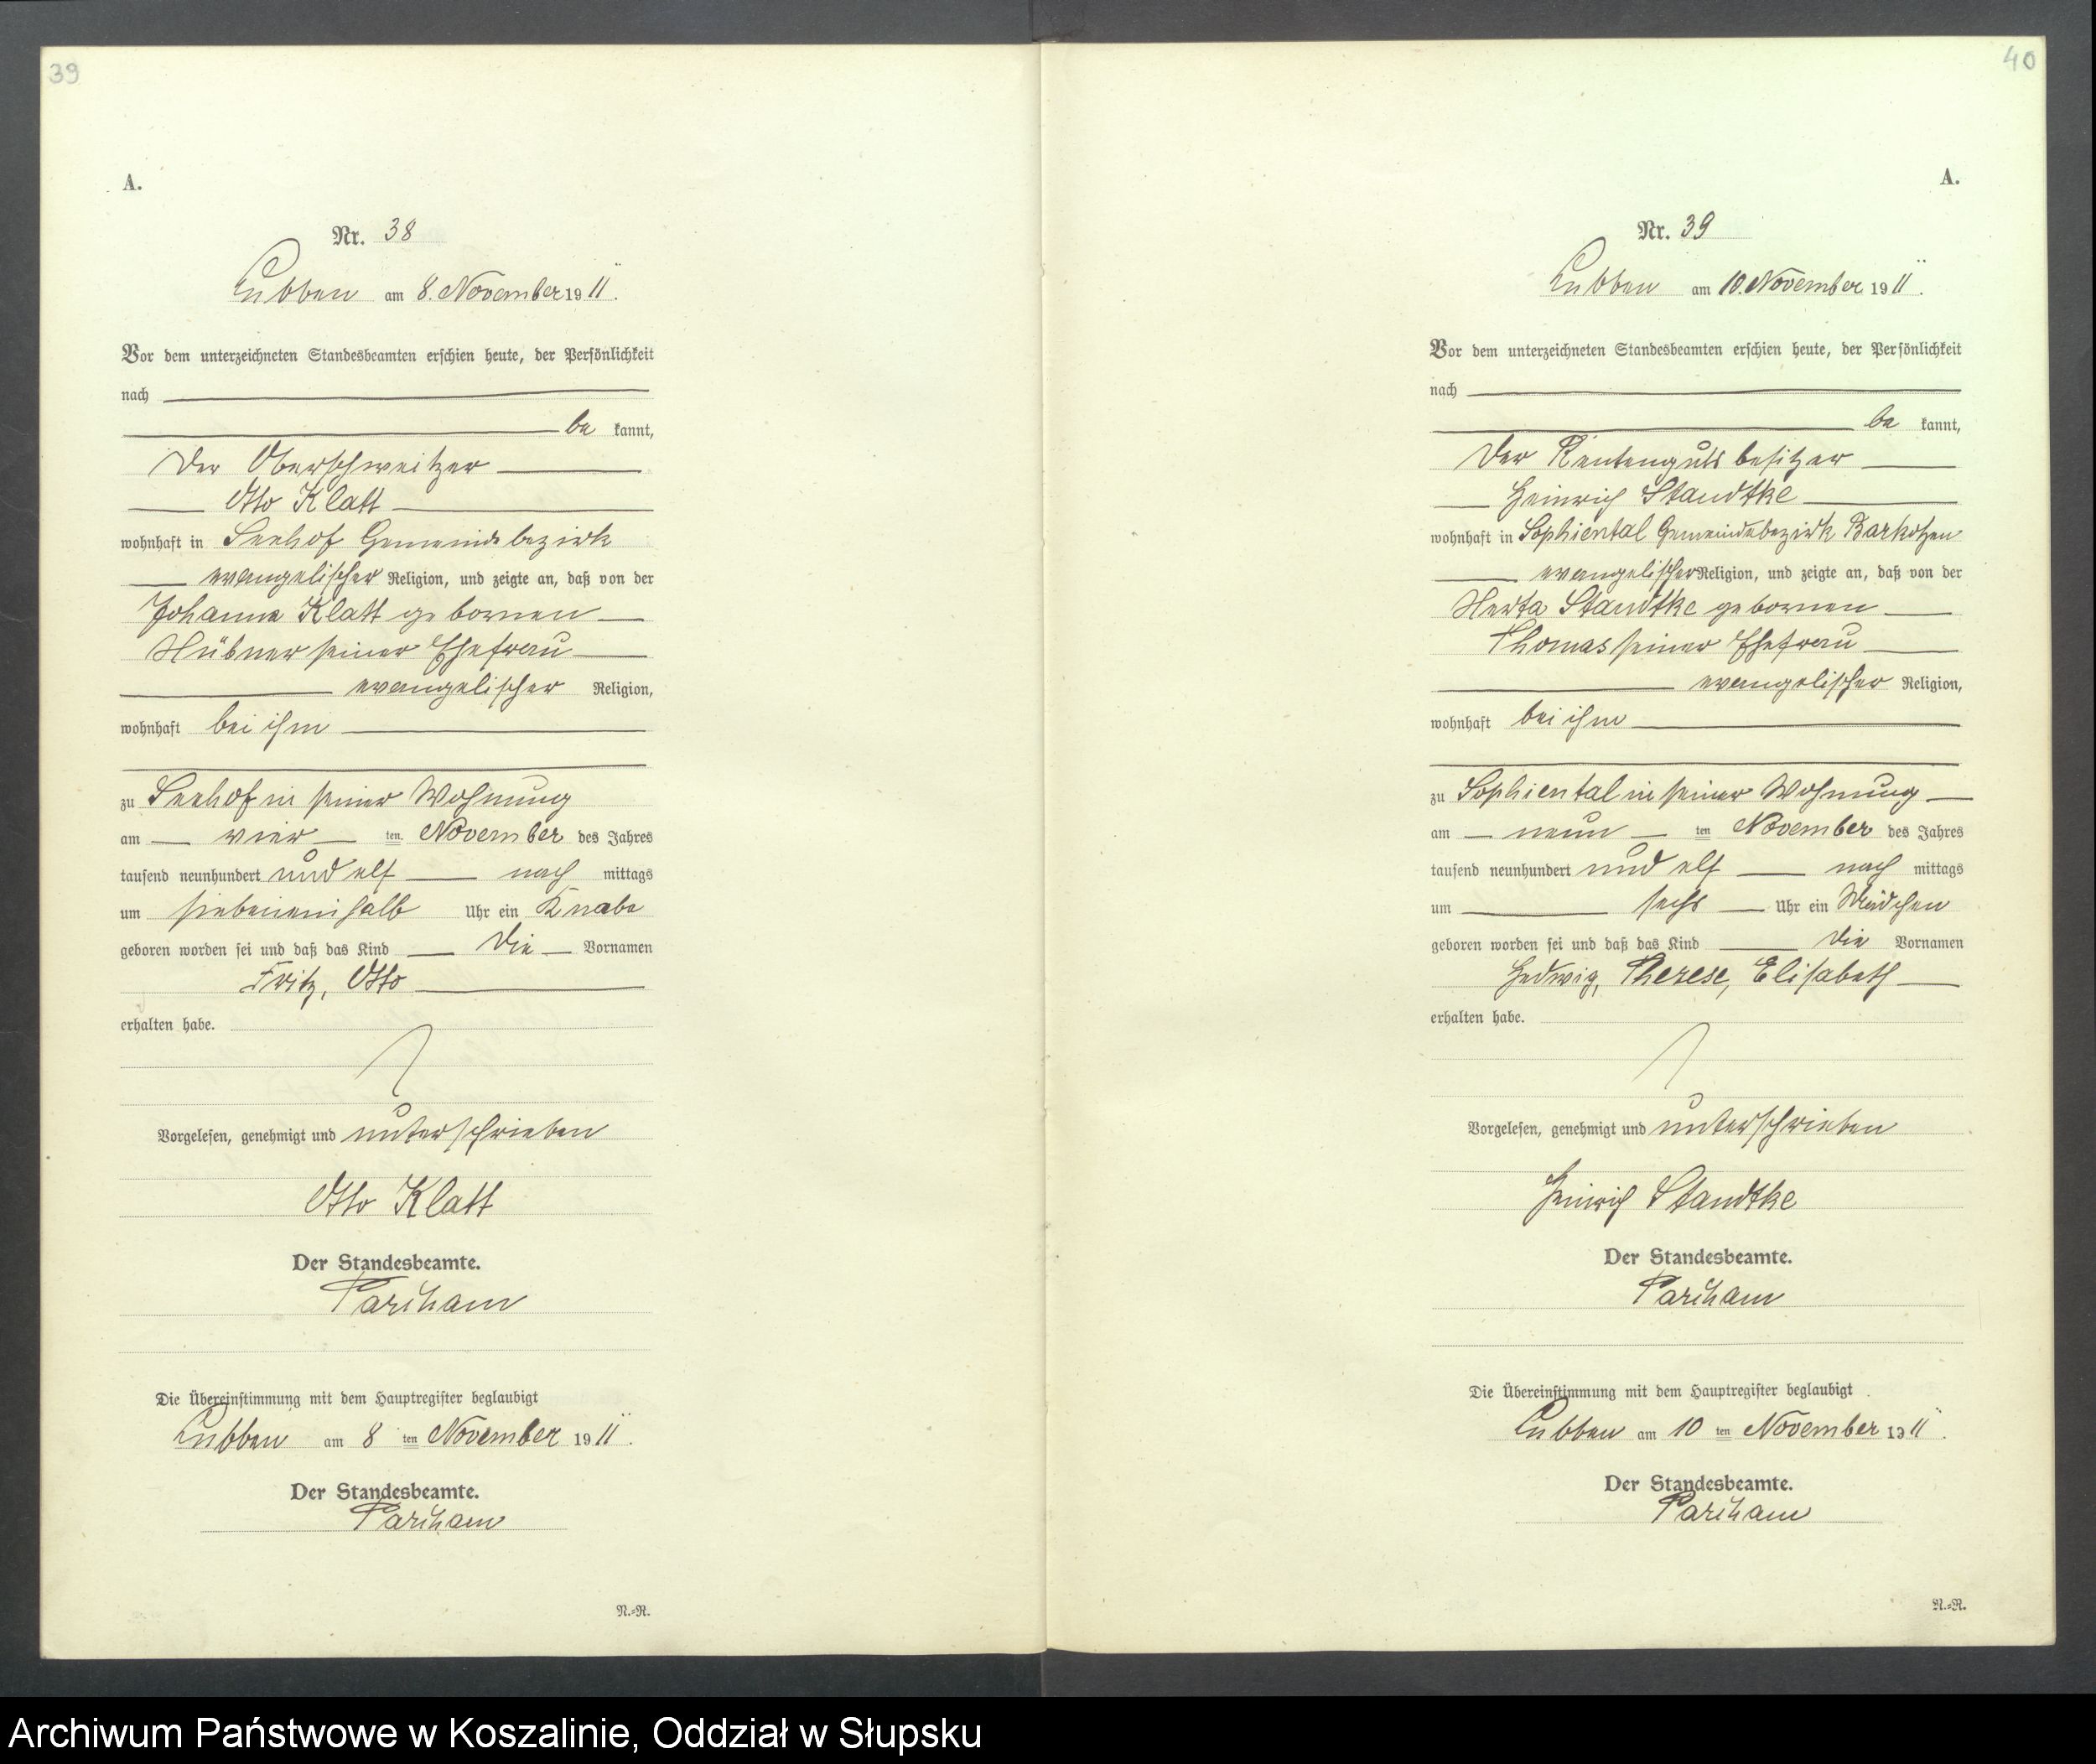 39
A.
Nr. 38
Lubben am 8. November 1911.
Vor dem unterzeichneten Standesbeamten erschien heute, der Persönlichkeit
nach
be kannt,
der Oberschweitzer
Otto Klatt
wohnhaft in Seehof Gemeindebezirk
evangelischer Religion, und zeigte an, daß von der
Johanna Klatt gebornen
Hübner seiner Ehefrau
evangelischer Religion,
wohnhaft bei ihm
zu Seehof in seiner Wohnung
am vier ten November des Jahres
tausend neunhundert und elf nach mittags
um siebeneinhalb Uhr ein Knabe
geboren worden sei und daß das Kind die Vornamen
Fritz, Otto
erhalten habe.
Vorgelesen, genehmigt und unterschrieben
Otto Klatt
Der Standesbeamte.
Die Übereinstimmung mit dem Hauptregister beglaubigt
Lubben am 8 ten November 1911.
Der Standesbeamte.
N.-R.
40
A.
Nr. 39
Lubben am 10. November 1911.
Vor dem unterzeichneten Standesbeamten erschien heute, der Persönlichkeit
nach
be kannt,
der Rentengutsbesitzer
Heinrich Standtke
wohnhaft in Sophiental Gemeindebezirk Barkotzen
evangelischer Religion, und zeigte an, daß von der
Herta Standtke gebornen
Thomas seiner Ehefrau
evangelischer Religion,
wohnhaft bei ihm
zu Sophiental in seiner Wohnung
am neun ten November des Jahres
tausend neunhundert und elf nach mittags
um sechs Uhr ein Mädchen
geboren worden sei und daß das Kind die Vornamen
Hedwig, Therese, Elisabeth
erhalten habe.
Vorgelesen, genehmigt und unterschrieben
Heinrich Standtke
Der Standesbeamte.
Die Übereinstimmung mit dem Hauptregister beglaubigt
Lubben am 10 ten November 1911.
Der Standesbeamte.
N.-R.
Archiwum Państwowe w Koszalinie, Oddział w Słupsku